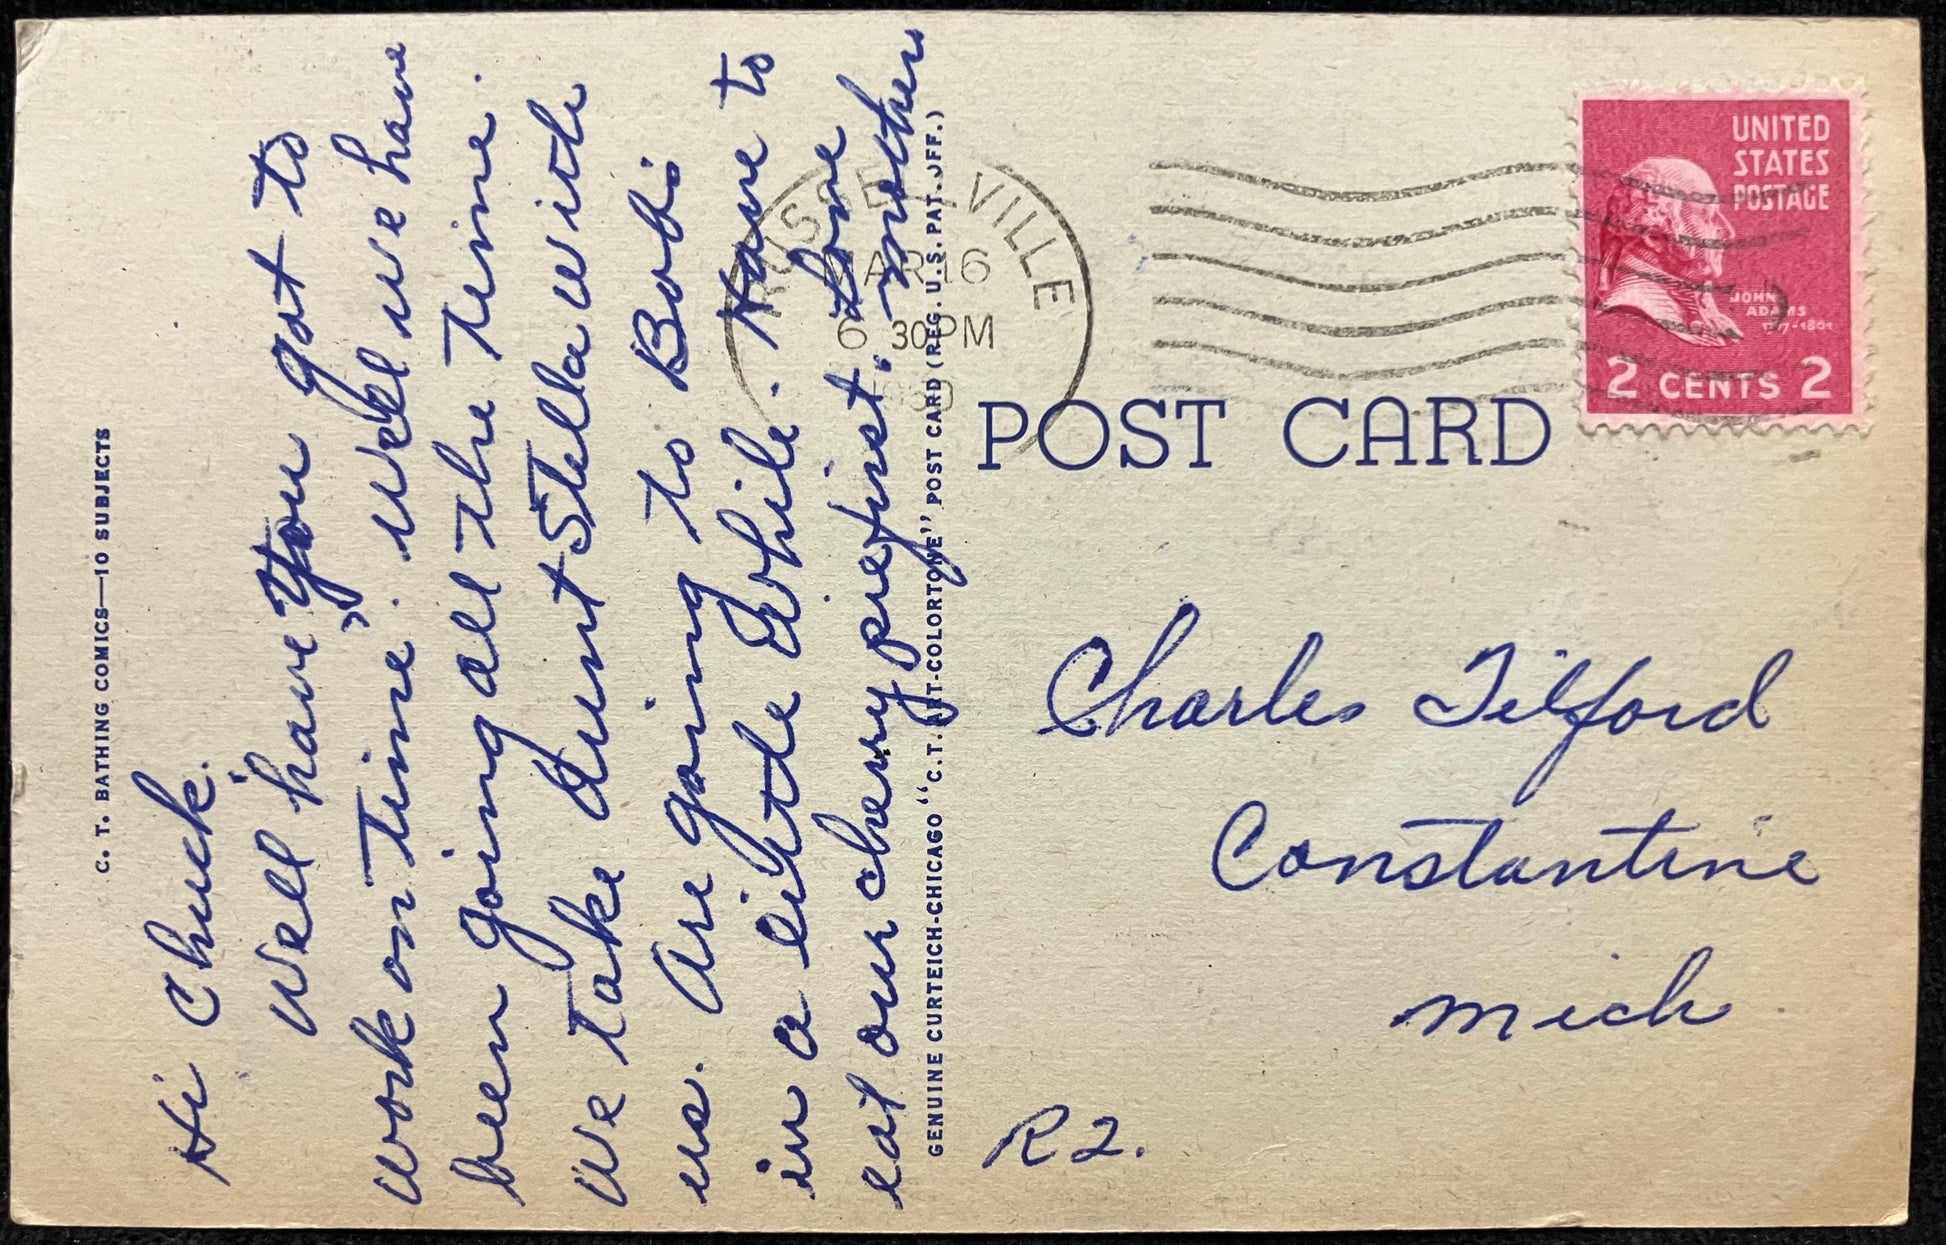 C. T. BATHING COMICS—10 SUBJECTS
Hi Chuck.
Well have you got to
work on time. Well we have
been going all the time.
We take Aunt Stella with
us. Are going to Bob's
in a little while. Have to
eat our cherry pie first.
Love
Mother
GENUINE CURTEICH-CHICAGO "C. T. ART-COLORTONE" POST CARD (REG. U. S. PAT. OFF.)
RUSSELLVILLE
MAR 16
6 30 PM
UNITED
STATES
POSTAGE
JOHN
ADAMS
1797-1801
2 CENTS 2
POST CARD
Charles Tilford
Constantine
Mich
R2.